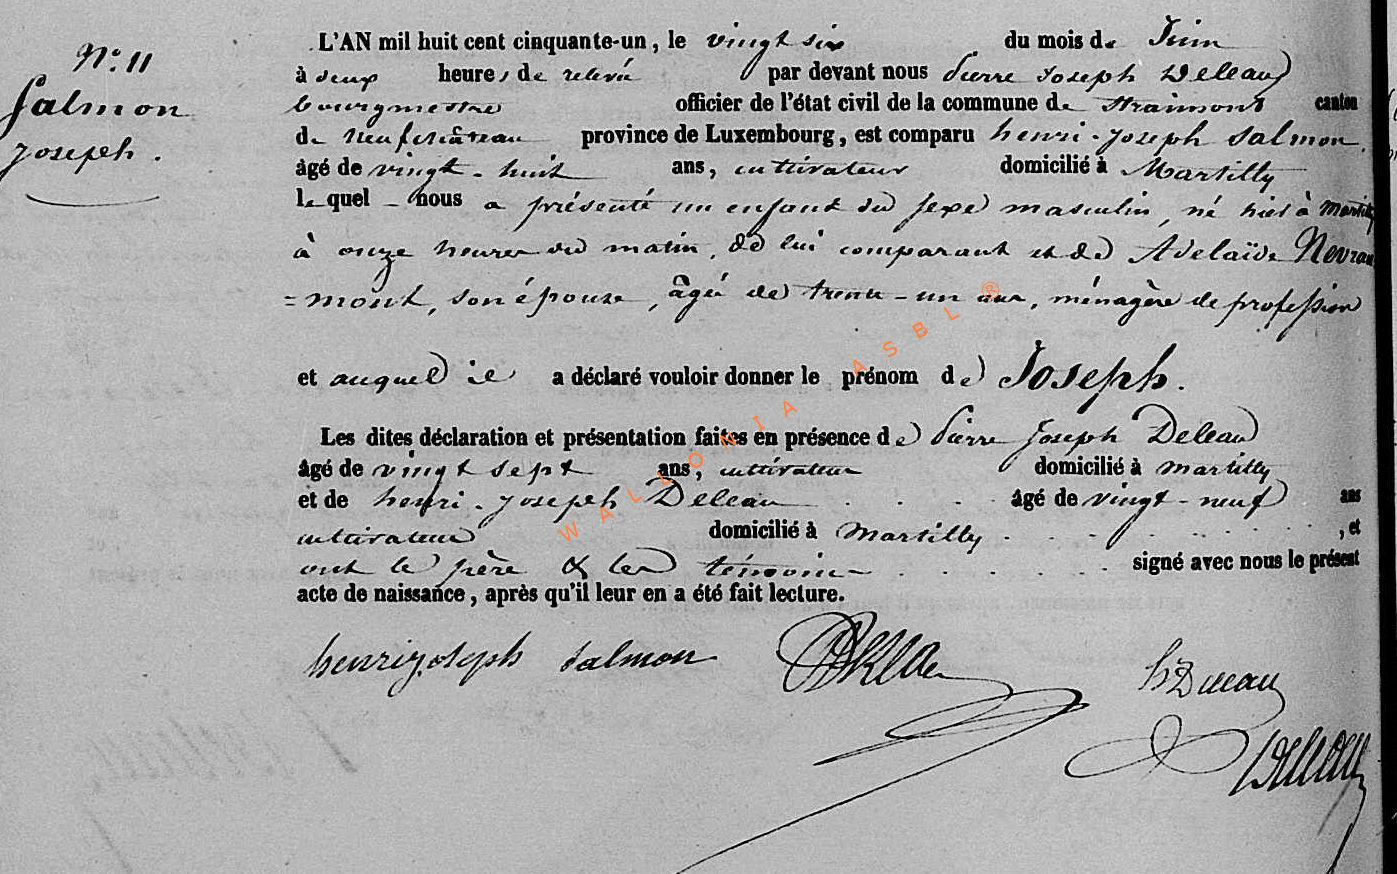 N.° 11
Salmon
Joseph.
L'AN mil huit cent cinquante-un, le vingt six du mois de Juin
à deux heures de relevée par devant nous Pierre Joseph Deleau
bourgmestre officier de l'état civil de la commune de Straimont canton
de Neufchâteau province de Luxembourg, est comparu henri-joseph Salmon,
âgé de vingt-huit ans, cultivateur domicilié à Martilly
lequel nous a présenté un enfant du sexe masculin, né hier à Martilly
à onze heures du matin, de lui comparant et de Adelaïde Nevrau
=mont, son épouse, âgée de trente-un ans, ménagère de profession
et auquel il a déclaré vouloir donner le prénom de Joseph.
Les dites déclaration et présentation faites en présence de Pierre Joseph Deleau
âgé de vingt sept ans, cultivateur domicilié à martilly
et de henri-joseph Deleau âgé de vingt-neuf ans
cultivateur domicilié à Martilly , et
ont le père & les témoins signé avec nous le présent
acte de naissance, après qu'il leur en a été fait lecture.
henri joseph salmon
h Deleau
Deleau
WALLONIA ASBL ®